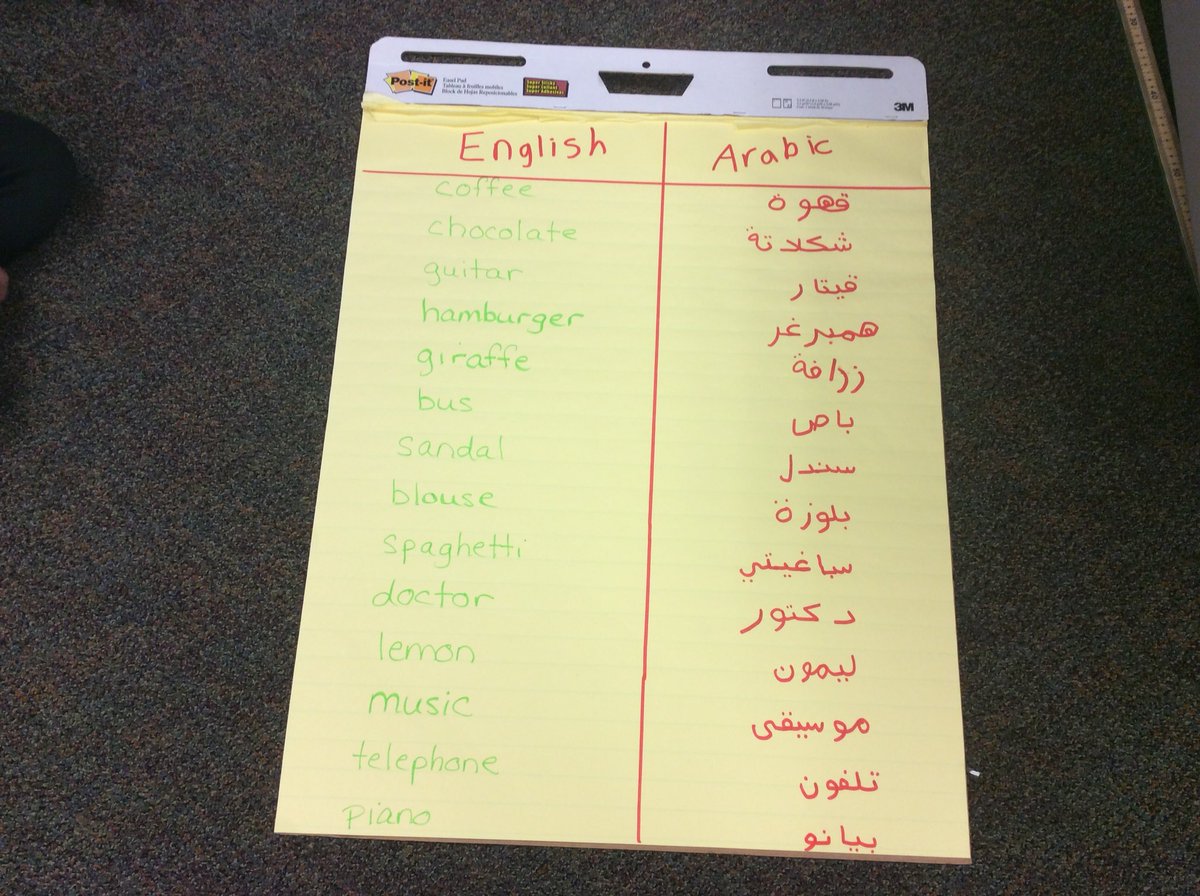 Post-it
Easel Pad
Tableau à feuilles mobiles
Block de Hojas Reposicionables
Super Sticky
3M
English Arabic
coffee قهوة
chocolate شكلاتة
guitar قيتار
hamburger همبرغر
giraffe زرافة
bus باص
sandal سندل
blouse بلوزة
spaghetti سباغيتي
doctor دكتور
lemon ليمون
music موسيقى
telephone تلفون
piano بيانو